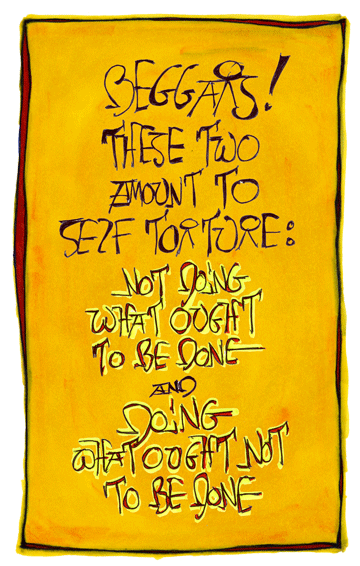 BEGGARS!
THESE TWO
AMOUNT TO
SELF TORTURE:
NOT DOING
WHAT OUGHT
TO BE DONE
AND
DOING
WHAT OUGHT NOT
TO BE DONE